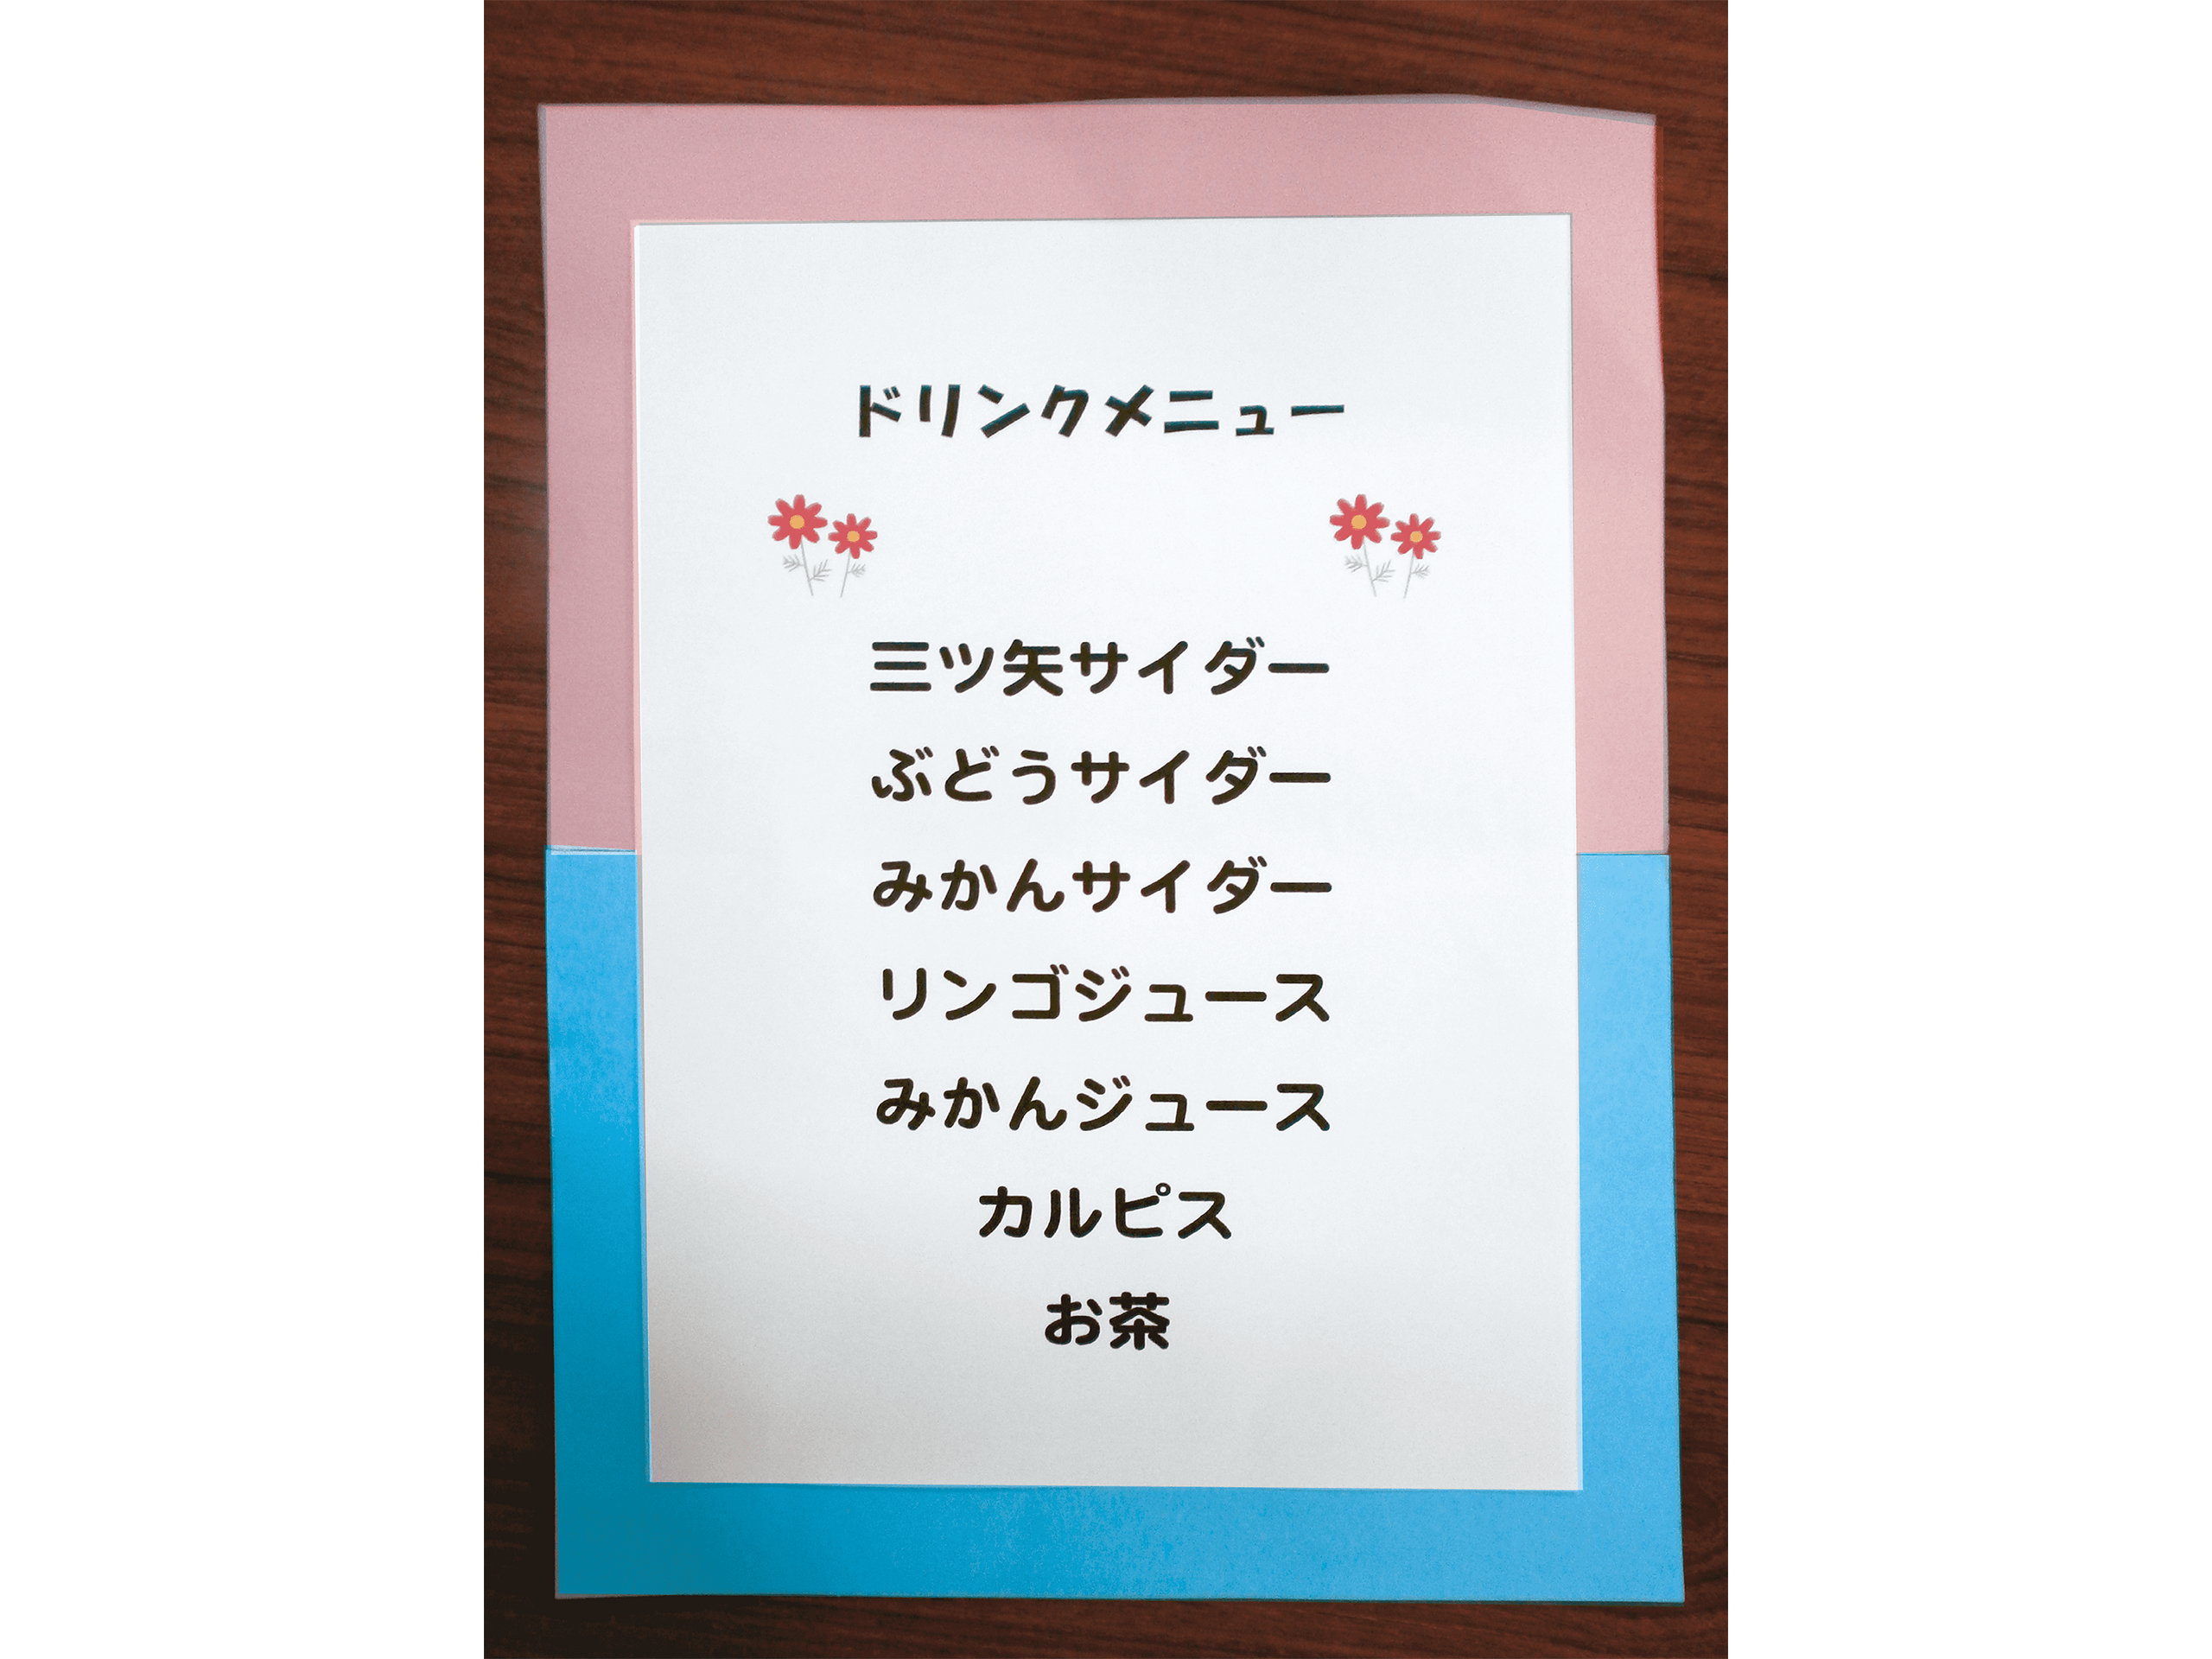 ドリンクメニュー
三ツ矢サイダー
ぶどうサイダー
みかんサイダー
リンゴジュース
みかんジュース
カルピス
お茶